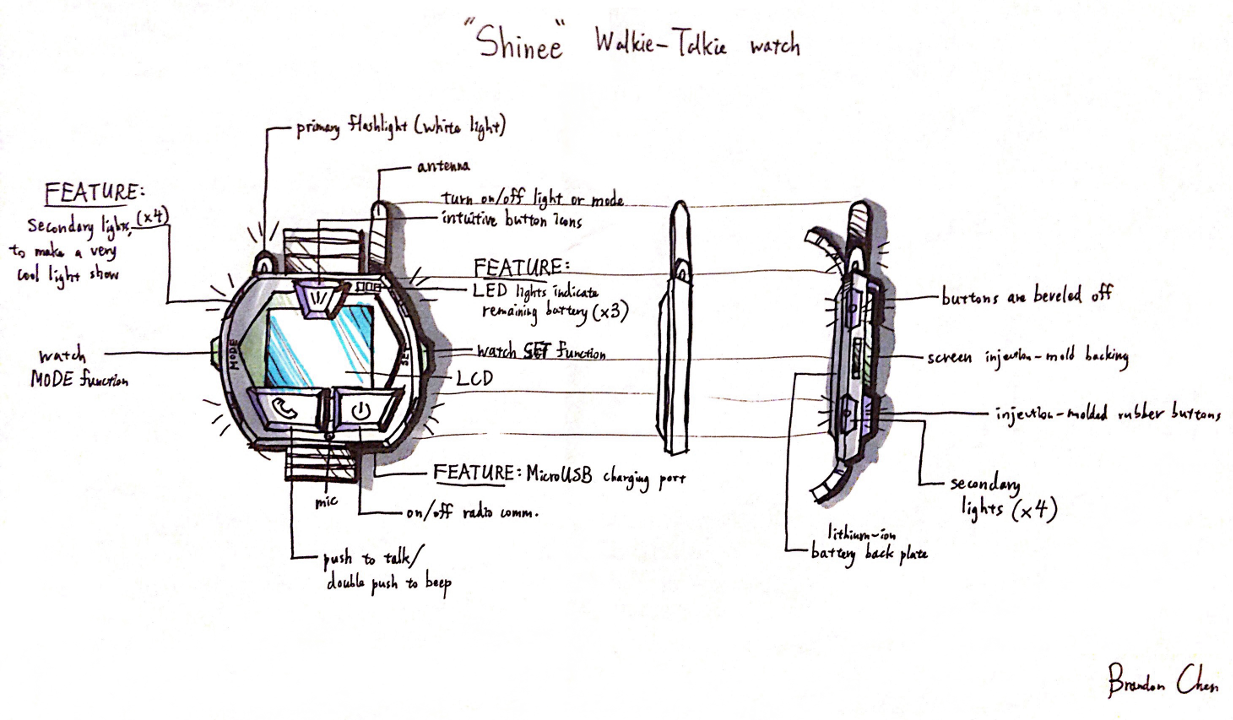 "Shinee" Walkie-Talkie watch
primary flashlight (white light)
antenna
FEATURE:
secondary lights, (x4)
to make a very
cool light show
turn on/off light or mode
intuitive button icons
FEATURE:
LED lights indicate
remaining battery (x3)
watch
MODE function
MODE
SET
watch SET function
LCD
FEATURE: MicroUSB charging port
mic
on/off radio comm.
push to talk/
double push to beep
buttons are beveled off
screen injection-mold backing
injection-molded rubber buttons
secondary
lights (x4)
lithium-ion
battery back plate
Brandon Chen